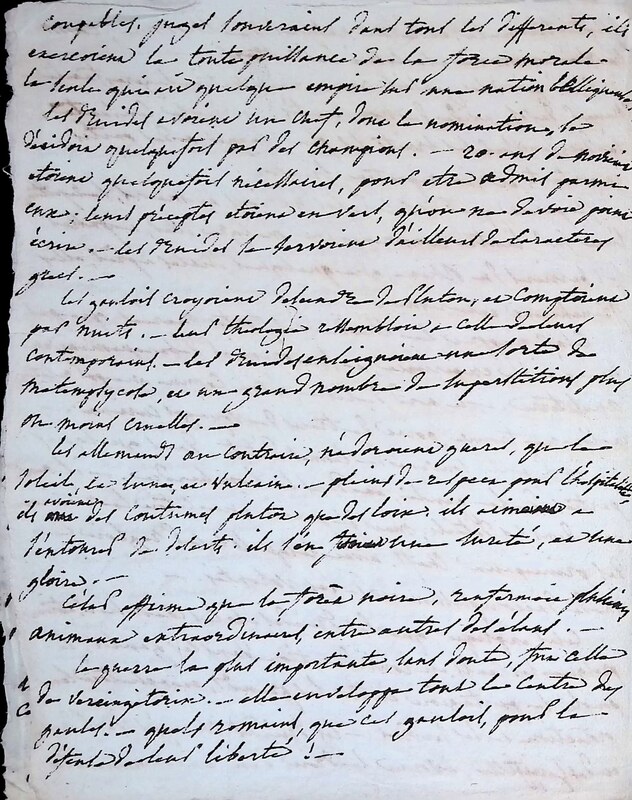 coupables. juges souverains dans tous les differents, ils
exercoient la toute puissance de la force morale
la seule qui ait quelque empire sur une nation belliqueuse.
les druides avoient un chef, dont la nomination, se
décidoit quelquefois par des champions. — 20 ans de noviciat
etoient quelquefois nécessaires, pour etre admis parmi
eux; leurs préceptes etoient en vers, qu'on ne devoit point
écrire. — les druides se servoient d'ailleurs de caracteres
grecs. —
les gaulois croyoient descendre de Pluton, et comptoient
par nuits. — leur theologie ressembloit a celle de leurs
contemporains. — les druides enseignoient une sorte de
metempsycose, et un grand nombre de superstitions plus
ou moins cruelles. —
les allemands au contraire, n'adoroient gueres, que le
soleil, la lune, et vulcain. — pleins de respect pour l'hospitalité
ils avoient des coutumes plutot que des loix. ils aimoient a
s'entourer de deserts. ils s'en une sureté, et une
gloire. —
César affirme que la forêt noire, renfermoit plusieurs
animaux extraordinaires, entre autres des élans. —
la guerre la plus importante, sans doute, fut celle
de vercingetorix. — elle enveloppa tout le centre des
gaules. — quels romains, que ces gaulois, pour la
défense de leur liberté! —